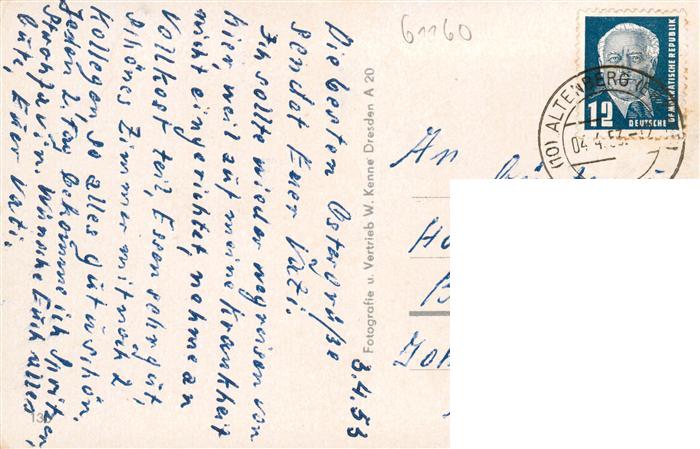 3.4.53
Die besten Ostergrüße
sendet Euer Vati.
Ich sollte wieder wegreisen von
hier, weil auf meine Krankheit
nicht eingerichtet, nehme an
Vollkost teil, Essen sehr gut,
schönes Zimmer mit noch 2
Kollegen so alles gut u. schön.
Jeden 2. Tag bekomme ich Spritzen,
Wünsche Euch alles
Gute, Euer Vati.
13
Fotografie u. Vertrieb W. Kenne Dresden A 20
61160
DEUTSCHE DEMOKRATISCHE REPUBLIK
12
(10) ALTENBERG
04.4.53.
An